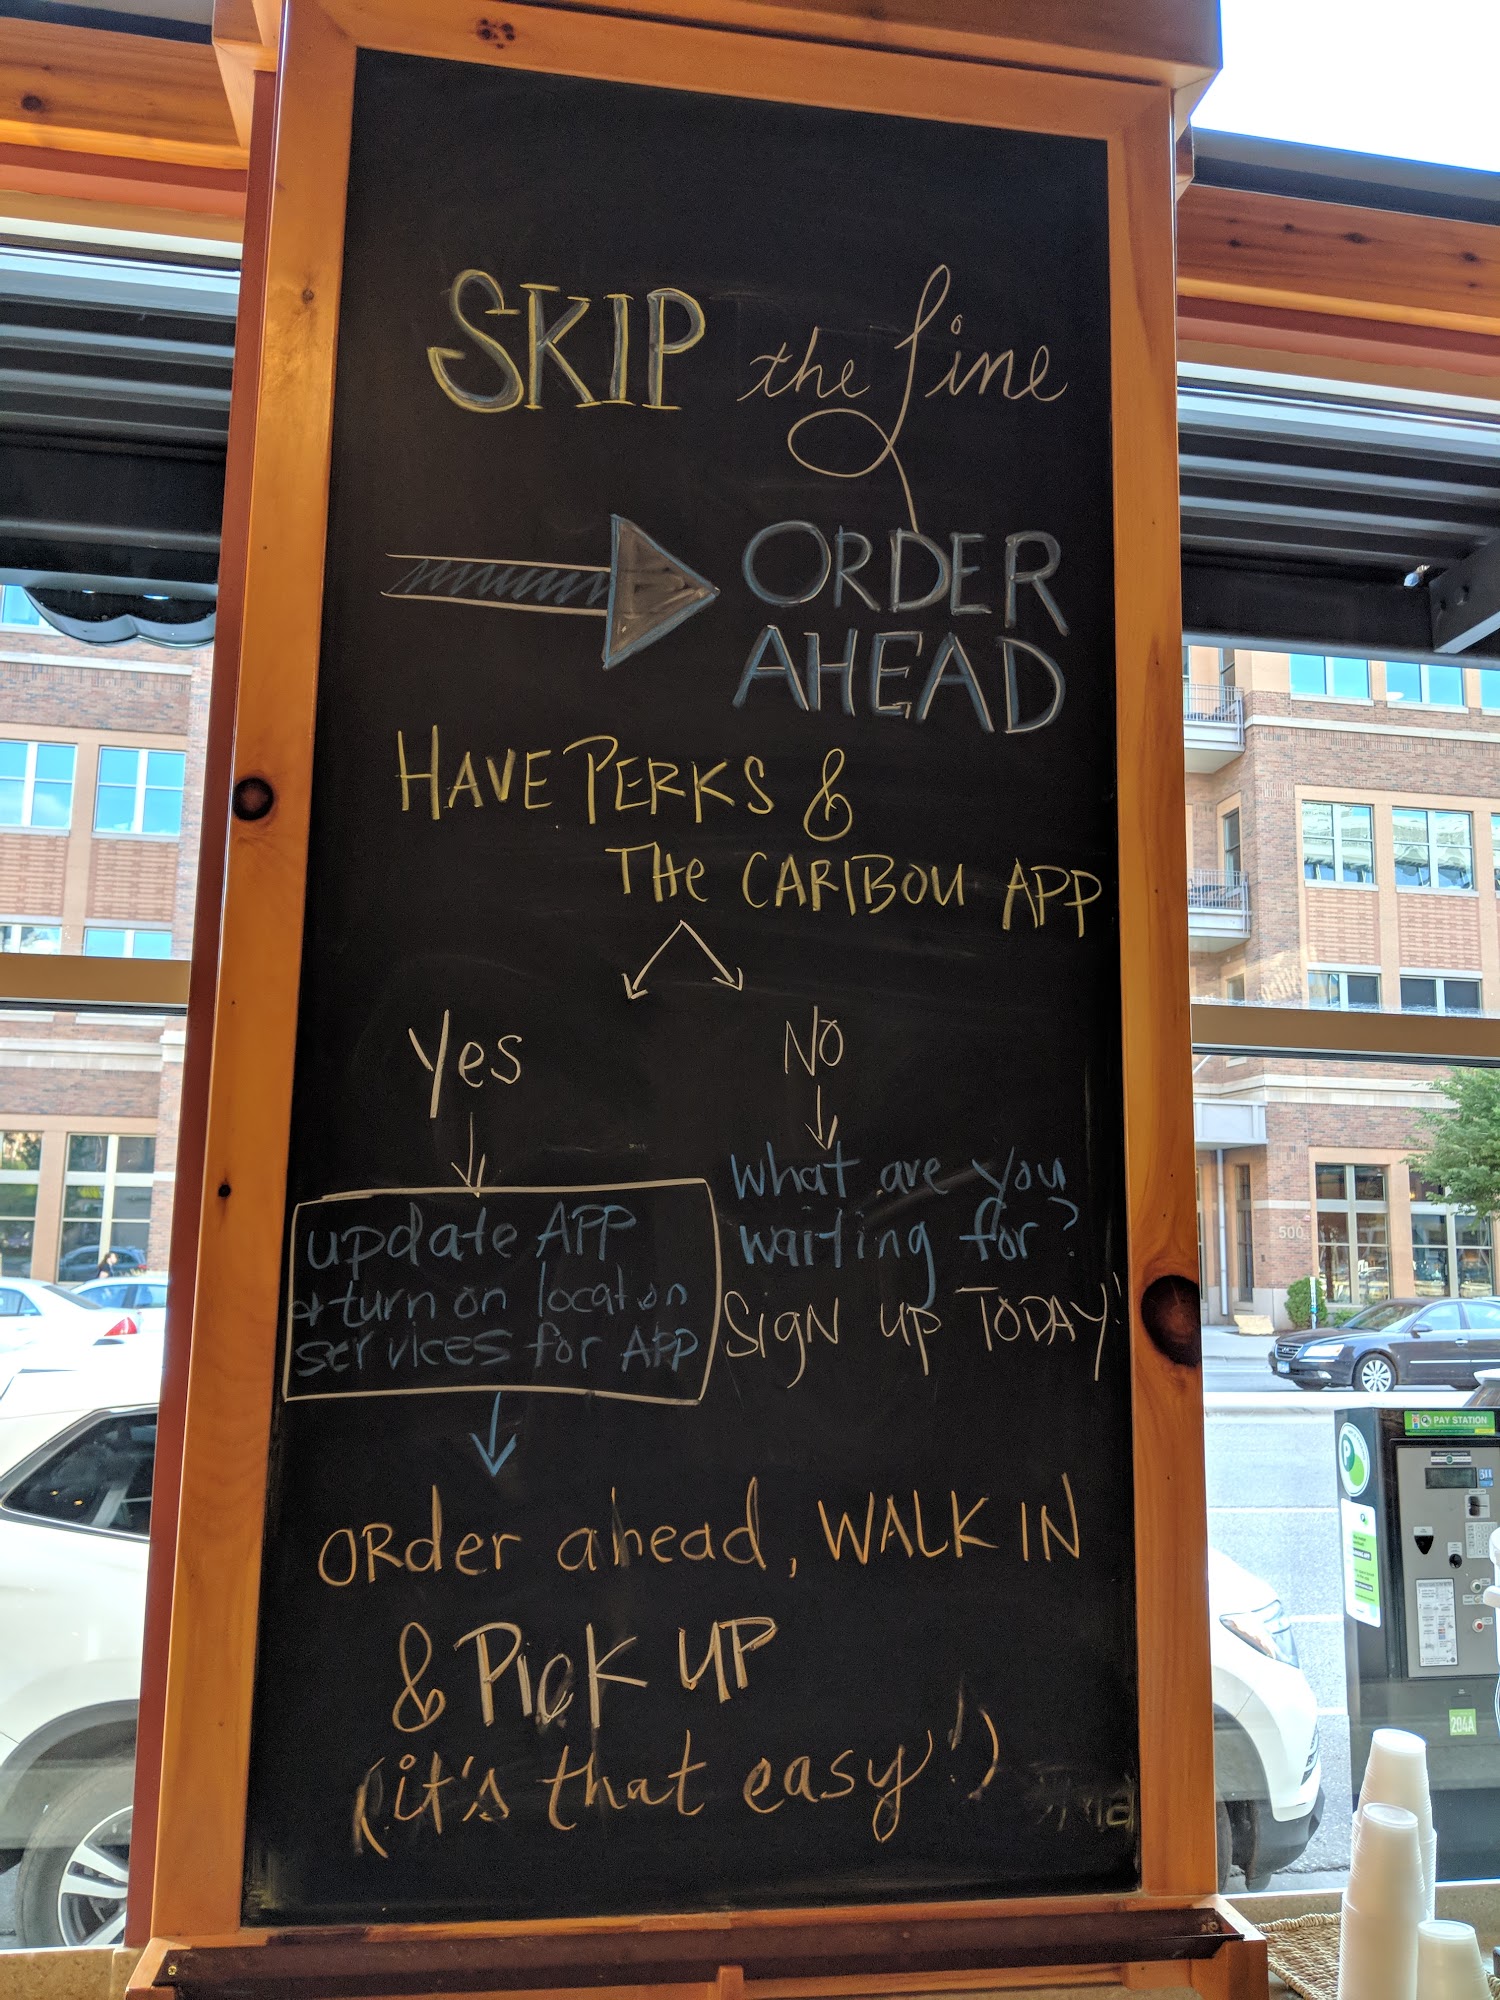 SKIP the line
ORDER
AHEAD
HAVE PERKS &
THe CARIBOU APP
Yes
NO
update APP
+ turn on location
services for APP
what are you
waiting for?
SigN up TODAY!
ORder ahead, WALK IN
& PicK UP
(it's that easy!)
500
PAY STATION
P
204A